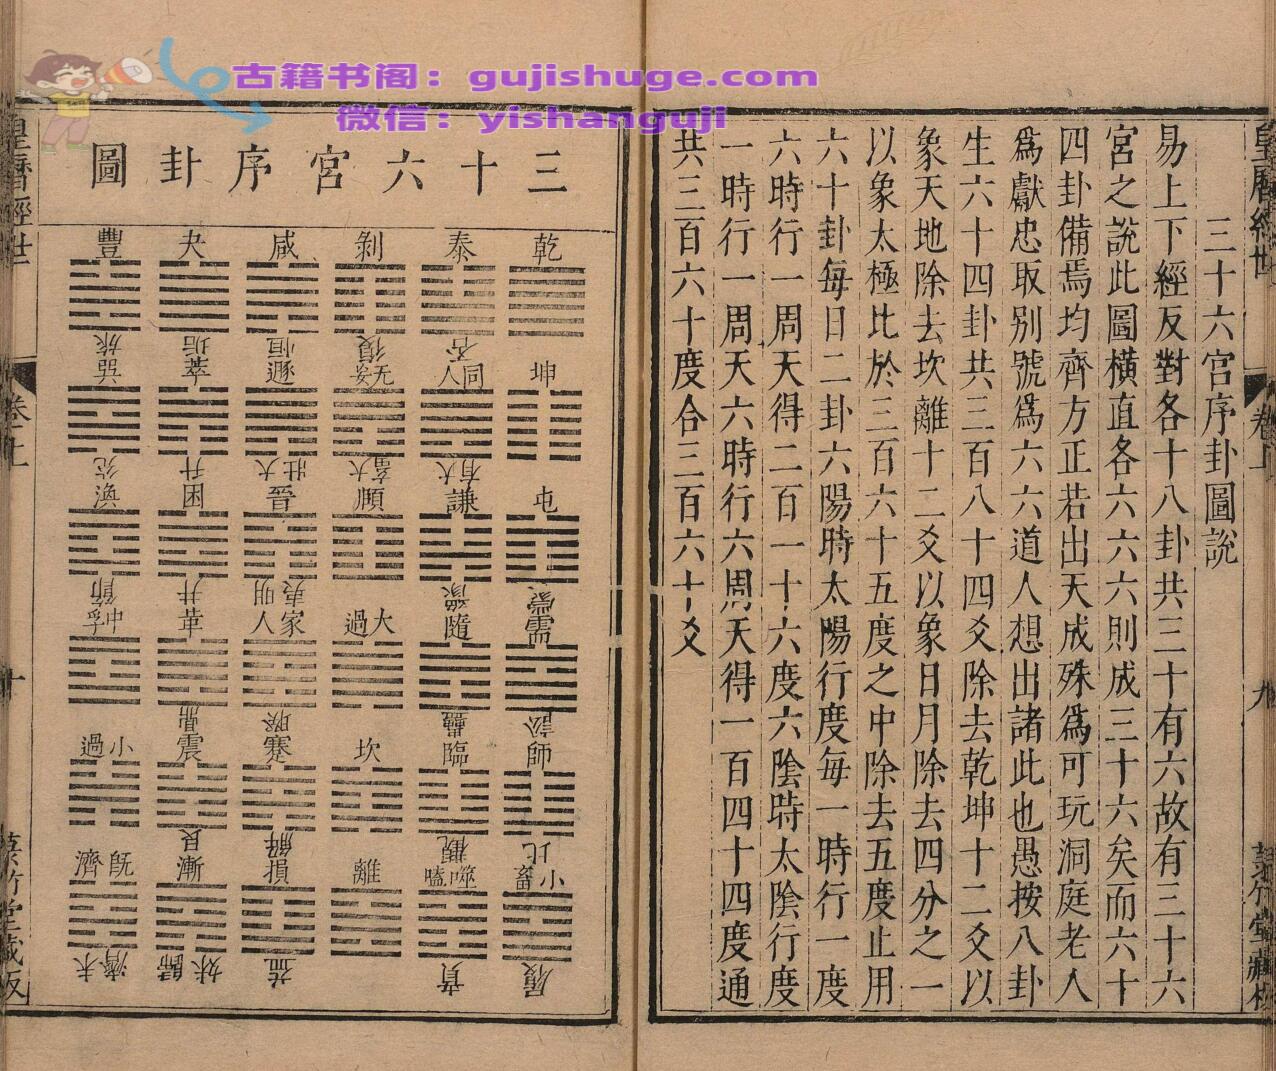 古籍书阁：gujishuge.com
微信：yishanguji
三十六宮序卦圖說
易上下經反對各十八卦共三十有六故有三十六
宮之說此圖橫直各六六六則成三十六矣而六十
四卦備焉均齊方正若出天成殊為可玩洞庭老人
為獻忠取別號為六六道人想出諸此也愚按八卦
生六十四卦共三百八十四爻除去乾坤十二爻以
象天地除去坎離十二爻以象日月除去四分之一
以象太極比於三百六十五度之中除去五度止用
六十卦每日二卦六陽時太陽行度每一時行一度
六時行一周天得二百一十六度六陰時太陰行度
一時行一周天六時行六周天得一百四十四度通
共三百六十度合三百六十爻
卷上
九
三十六宮序卦圖
乾 泰 剝 咸 夬 豐
否 復 恒 姤 旅
坤 同人 无妄 遯 萃 巽
大有 大畜 大壯 升 兌
屯 謙 頤 晉 困 渙
蒙 豫 明夷 井 節
需 隨 大過 家人 革 中孚
訟 蠱 睽 鼎
師 臨 坎 蹇 震 小過
比 觀 解 艮
小畜 噬嗑 離 損 漸 既濟
履 賁 益 歸妹 未濟
皇曆經世
卷上
十
藏板